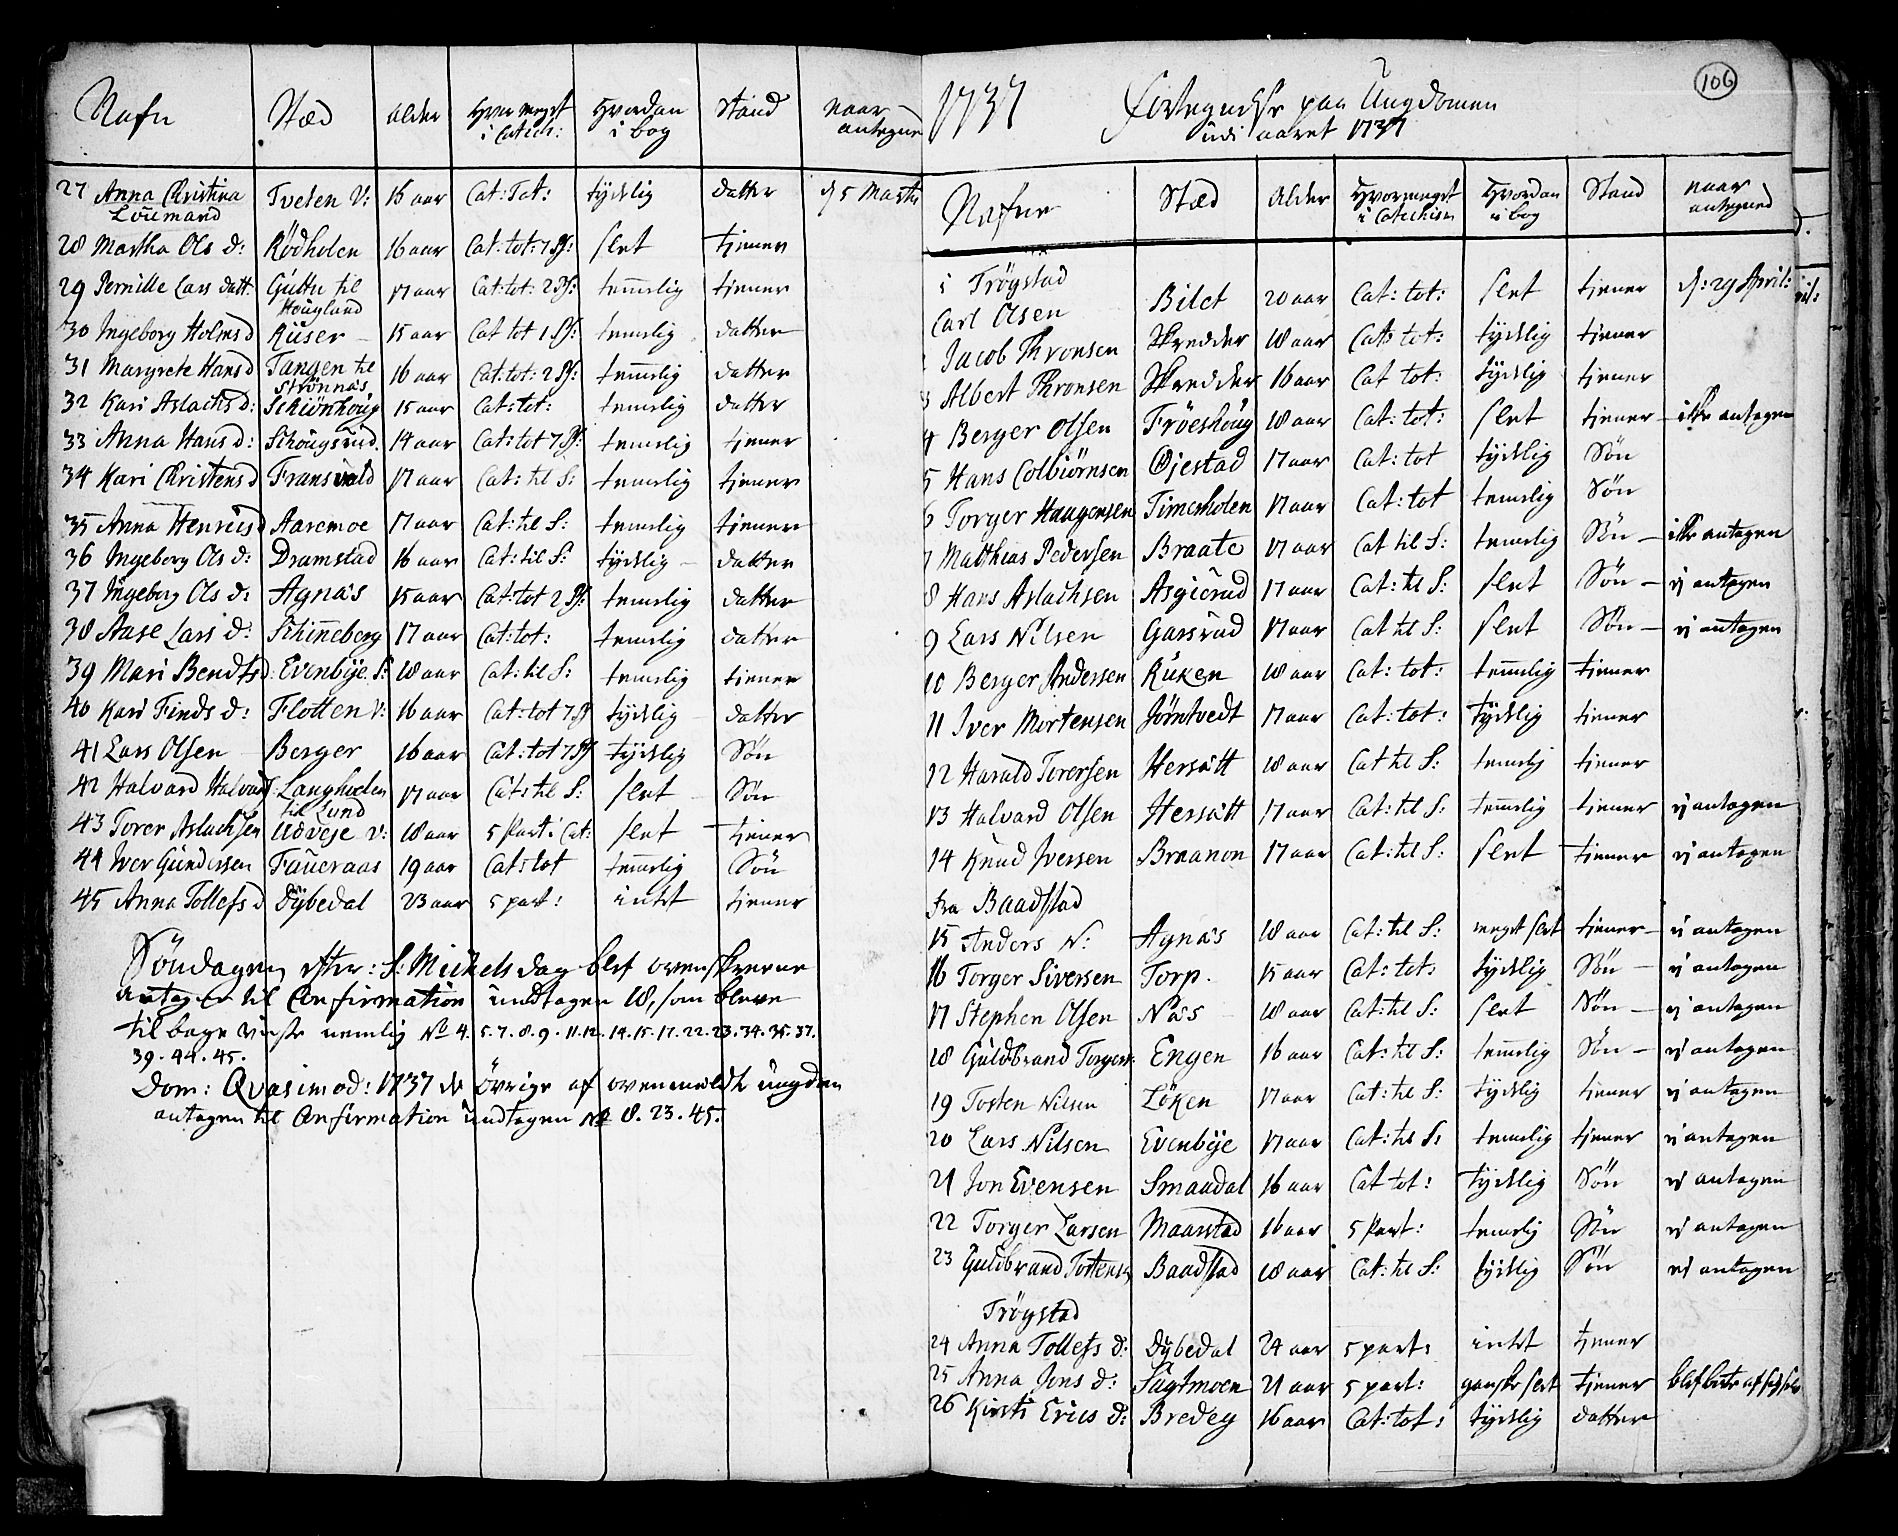 Nafn Stæd Alder Hvor meget i Catech: Hvordan i bog Stand naar antegned
27 Anna Christina Loumand Tveten V: 16 aar Cat: Tot: tydelig datter d 5 Martii
28 Martha Ols d: Rødholen 16 aar Cat: tot: 7 Ps: slet tiener
29 Pernille Lars datt: Guttu til Hougland 17 aar Cat: tot: 2 Ps: temmelig tiener
30 Ingeborg Holms d Ruser 15 aar Cat tot 1 Ps: temelig datter
31 Margrete Hans d Tangen til Strønnæs 16 aar Cat: tot: 2 Ps: temmelig datter
32 Kari Aslachs d: Schiønhoug 15 aar Cat: tot: temelig datter
33 Anna Hans d: Schougsrud 14 aar Cat: tot 7 Ps: temelig tiener
34 Kari Christens d Fransvold 17 aar Cat: til S: temelig tiener
35 Anna Henrics d Aaremoe 17 aar Cat: til S: temelig tiener
36 Ingeborg Ols d: Dramstad 16 aar Cat: til S: tydelig datter
37 Ingeborg Ols d: Agnæs 15 aar Cat: tot 2 Ps: temelig datter
38 Aase Lars d: Schinneberg 17 aar Cat: tot: temelig datter
39 Mari Bendts d: Evenbye S: 18 aar Cat: til S: temelig tiener
40 Kari Finds d: Flotten V: 16 aar Cat: tot 7 Ps tydelig datter
41 Lars Olsen Berger 16 aar Cat: tot 7 Ps tydelig Søn
42 Halvard Halvards: Langholen til Lund 17 aar Cat: til S: slet Søn
43 Torer Aslachsen Udveje V: 18 aar 5 Part: Cat: slet tiener
44 Iver Gundersen Faueraas 19 aar Cat: tot temmelig Søn
45 Anna Tollefs d Dybedal 23 aar 5 part: intet tiener
Søndagen efter: S: Michels dag blef ovenskrevne
antagen til Confirmation undtagen 18, som bleve
til bage viiste nemlig No 4. 5. 7. 8. 9. 11. 12. 14. 15. 17. 22. 23. 34. 35. 37.
39. 44. 45.
Dom: Quasimod: 1737 de øvrige af ovenmeldte ungdom
antagen til Confirmation undtagen No 8. 23. 45.
106
1737 Fortegnelse paa Ungdomen
udi aaret 1737
Nafne Stæd Alder Hvormeget i Catechism Hvordan i bog Stand naar antegned
i Trøgstad
Carl Olsen Bilet 20 aar Cat: tot: slet tiener d: 29 April:
Jacob Thronsen Skredder 18 aar Cat: tot: tydelig tiener
3 Albert Thronsen Skredder 16 aar Cat tot: tydelig tiener
4 Berger Olsen Frøeshoug 18 aar Cat: tot: slet tiener ikke antagen
5 Hans Colbiørnsen Øjestad 17 aar Cat: tot tydelig Søn
6 Torger Haagensen Timerholen 17 aar Cat: tot temelig Søn
7 Matthias Pedersen Braate 17 aar Cat til S: temelig Søn ikke antagen
8 Hans Aslachsen Asgierud 17 aar Cat: til S: slet Søn ej antagen
9 Lars Nilsen Garsrud 17 aar Cat til S: slet Søn ej antagen
10 Berger Andersen Ruken 18 aar Cat: tot: temmelig tiener
11 Iver Mortensen Jørntvedt 17 aar Cat: tot: tydelig tiener
12 Harald Torersen Hersætt 18 aar Cat til S: temelig tiener
13 Halvard Olsen Hersætt 17 aar Cat: til S: temmelig tiener ej antagen
14 Knud Iversen Braanon 17 aar Cat: til S: slet tiener ej antagen
fra Baadstad
15 Anders N: Agnæs 18 aar Cat: til S: meget slet tiener ej antagen
16 Torger Siversen Torp. 15 aar Cat: tot: tydelig Søn ej antagen
17 Stephen Olsen Næss 18 aar Cat: til S: slet Søn ej antagen
18 Guldbrand Torgers: Engen 16 aar Cat: til S: temmelig Søn ej antagen
19 Tosten Nilsen Løken 17 aar Cat: til S: tydelig tiener ej antagen
20 Lars Nilsen Evenbye 17 aar Cat: til S: temelig tiener ej antagen
21 Jon Evensen Smaadal 16 aar Cat tot: tydelig Søn ej antagen
22 Torger Larsen Maarstad 16 aar 5 Part: temelig Søn ej antagen
23 Guldbrand Tostens: Baadstad 18 aar Cat: til S: tydelig Søn ej antagen
Trøgstad
24 Anna Tollefs d: Dybedal 24 aar 5 part: intet tiener
25 Anna Jens d: Sagtmoen 21 aar 5 part: ganske slet tiener
26 Kirsti Erics d: Bredeg 16 aar Cat: tot: tydelig datter